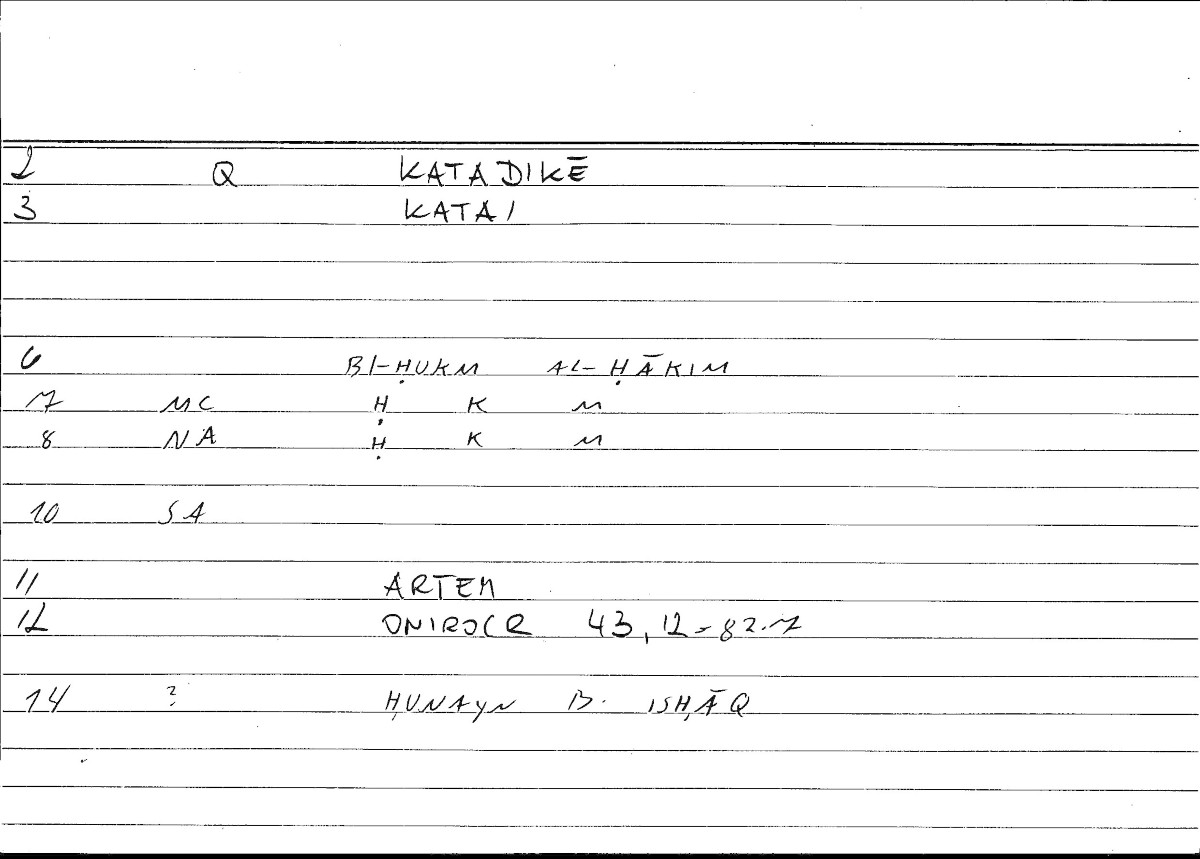 2 Q KATADIKĒ
3 KATAI
6 BI-ḤUKM AL-ḤĀKIM
7 MC Ḥ K M
8 NA Ḥ K M
10 SA
11 ARTEM
12 ONIROCR 43,12=82.7
14 ? ḤUNAYN B. ISḤĀQ